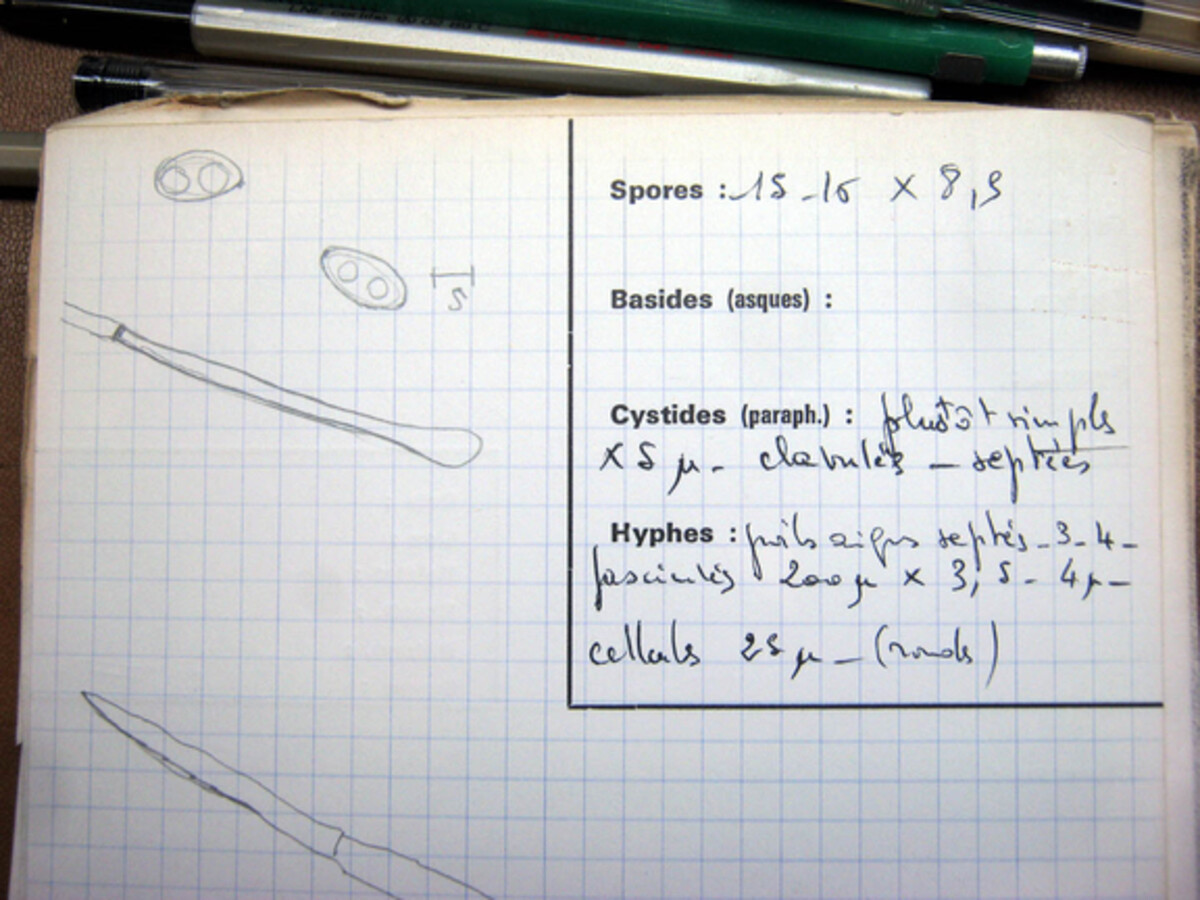 Spores : 15-16 × 8,5
5
Basides (asques) :
Cystides (paraph.) : plutôt simples
× 5 µ - clavulés - septées
Hyphes : poils aigus septés - 3-4 -
fasciculés 200 µ × 3,5 - 4 µ -
cellules 25 µ - (rondes)